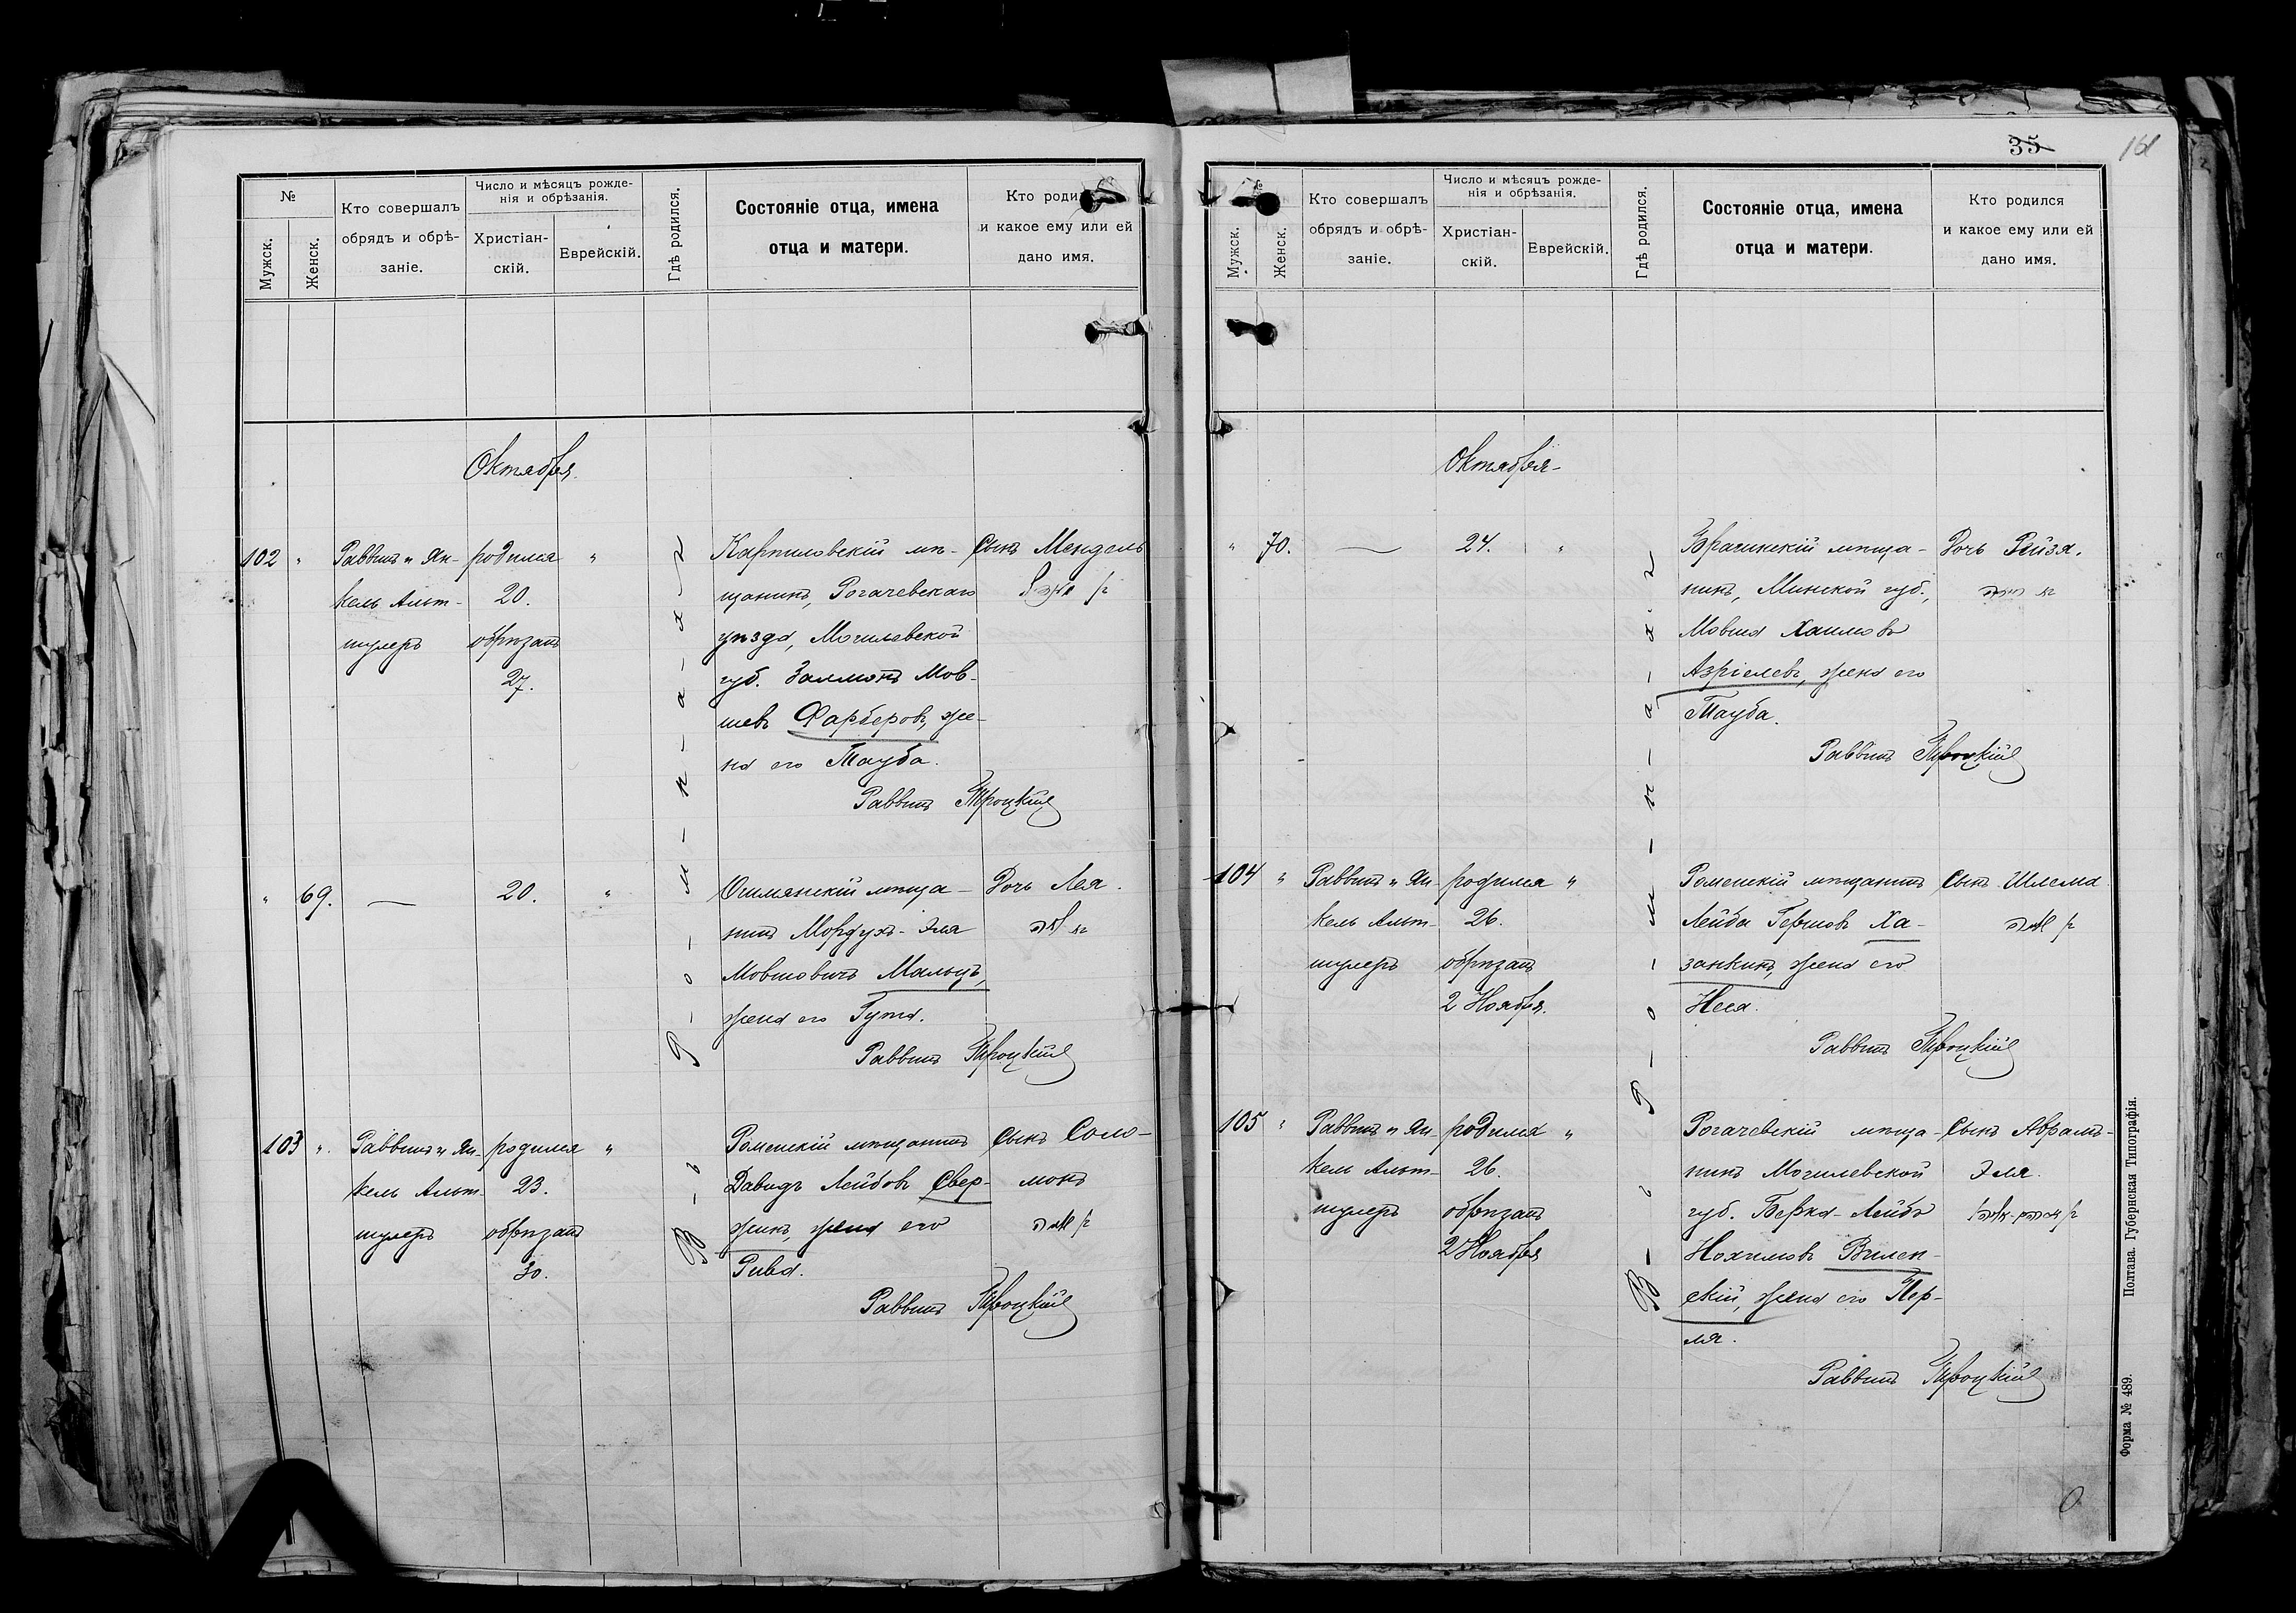 №
Мужск.
Женск.
Кто совершалъ
обрядъ и обрѣ-
заніе.
Число и мѣсяцъ рожде-
нія и обрѣзанія.
Христіан-
скій.
Еврейскій.
Гдѣ родился.
Состояніе отца, имена
отца и матери.
Кто роди
и какое ему или ей
дано имя.
Октября.
В-ъ Р-о-м-н-а-х-ъ
102 "
Раввинъ и Ян-
кель Альт-
шулеръ
родился
20.
обрѣзанъ
27.
"
Карпиловскій мѣ-
щанинъ, Рогачевскаго
уѣзда, Могилевской
губ. Залманъ Мов-
шевъ Фарберовъ, же-
на его Тауба.
Сынъ Мендель
Раввинъ Троцкій
" 69. —
20. "
Ошмянскій мѣща-
нинъ Мордухъ-Эля
Мовшовичъ Мальцъ,
жена его Гута.
Дочь Лея.
Раввинъ Троцкій
103 "
Раввинъ и Ян-
кель Альт-
шулеръ
родился
23.
обрѣзанъ
30.
"
Роменскій мѣщанинъ
Давидъ Лейбовъ Свер-
жинъ, жена его
Рива.
Сынъ Соло-
монъ
Раввинъ Троцкій
35
161
№
Мужск.
Женск.
Кто совершалъ
обрядъ и обрѣ-
заніе.
Число и мѣсяцъ рожде-
нія и обрѣзанія.
Христіан-
скій.
Еврейскій.
Гдѣ родился.
Состояніе отца, имена
отца и матери.
Кто родился
и какое ему или ей
дано имя.
Октября
В-ъ Р-о-м-н-а-х-ъ
" 70. —
24. "
Брагинскій мѣща-
нинъ, Минской губ.,
Мовша Хаимовъ
Азріелевъ, жена его
Тауба.
Дочь Рейзя.
Раввинъ Троцкій
104 "
Раввинъ и Ян-
кель Альт-
шулеръ
родился
26.
обрѣзанъ
2 Ноября.
"
Роменскій мѣщанинъ
Лейба Гершовъ Ха-
занкинъ, жена его
Неся.
Сынъ Шлема
Раввинъ Троцкій
105 "
Раввинъ и Ян-
кель Альт-
шулеръ
родился
26.
обрѣзанъ
2 Ноября
"
Рогачевскій мѣща-
нинъ Могилевской
губ. Берка-Лейба
Нохимовъ Вилен-
скій, жена его Пер-
ля.
Сынъ Абрамъ-
Эля.
Раввинъ Троцкій
Полтава. Губернская Типографія.
Форма № 489.